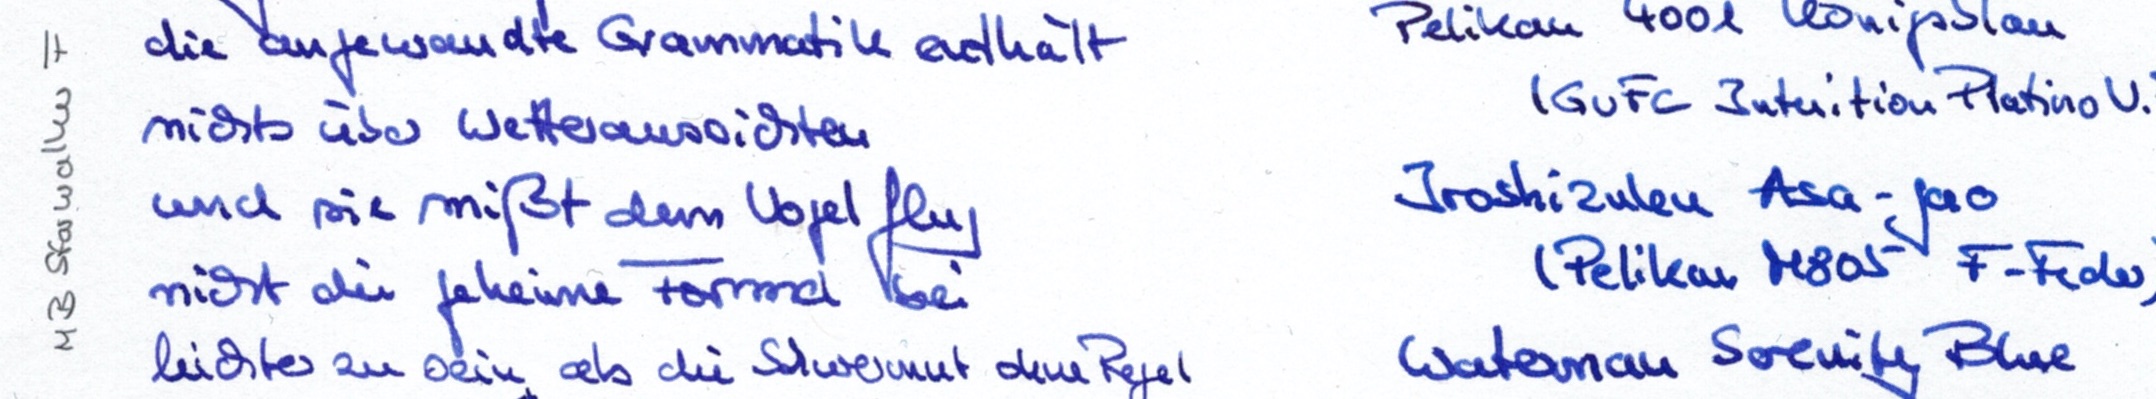 die angewandte Grammatik enthält
nichts über Wetteraussichten
und sie mißt dem Vogelflug
nicht die geheime Formel bei
leichter zu sein, als die Schwermut dem Regel
Pelikan 4001 Königsblau
(GvFC Intuition Platino
Iroshizuku Asa-gao
(Pelikan M805 F-Feder)
Waterman Serenity Blue
MB